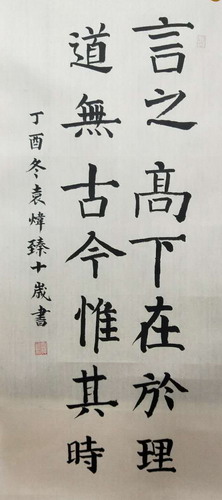 言之高下在於理
道無古今惟其時
丁酉冬袁煒臻十歲書